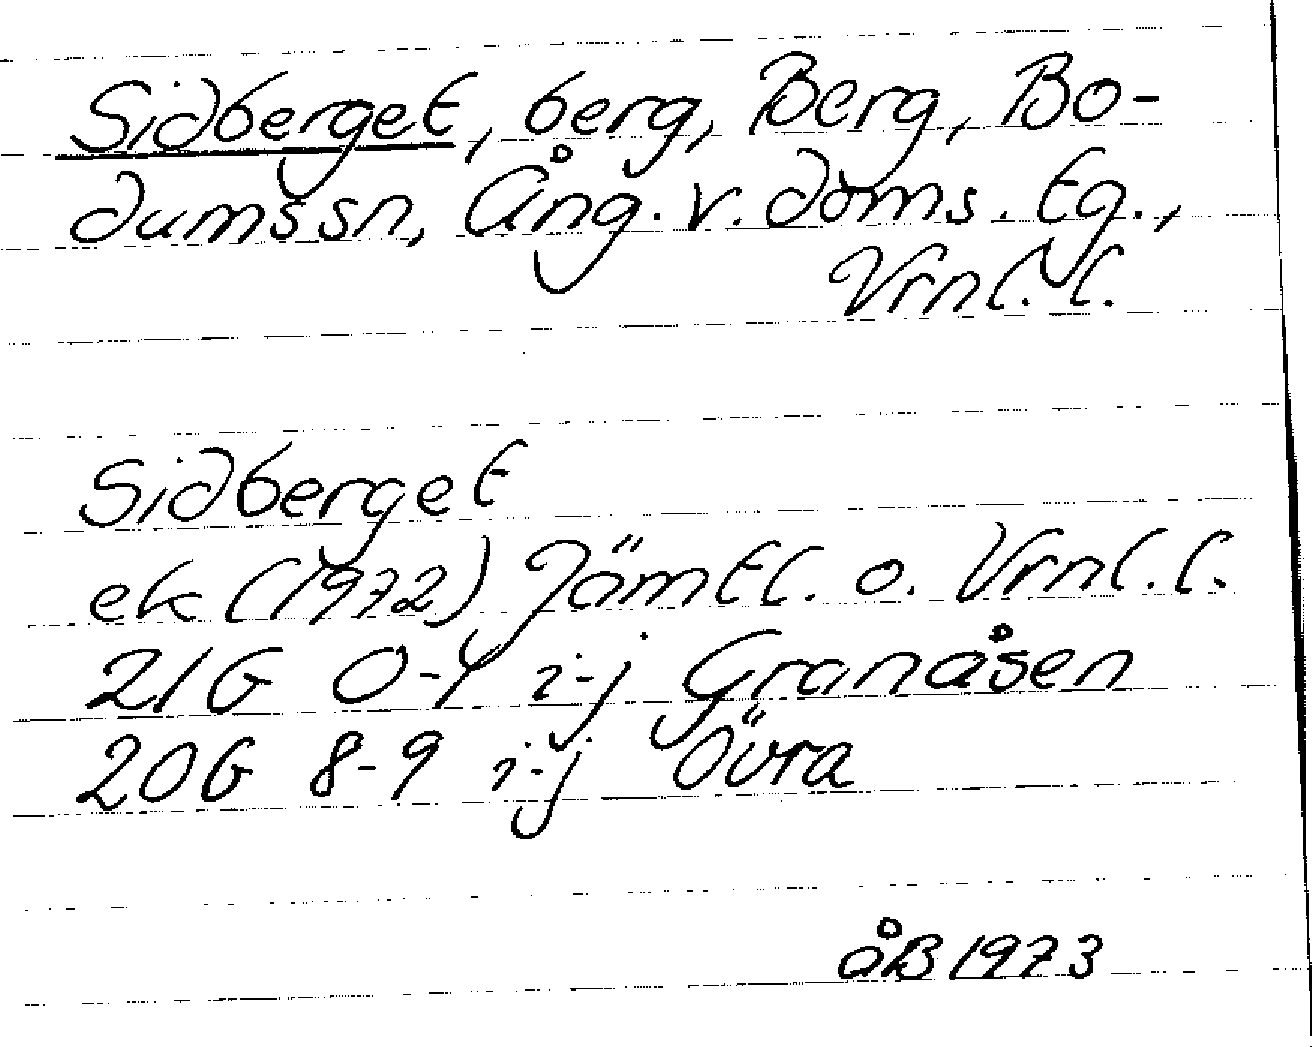 Sidberget, berg, Berg, Bo-
dumssn, Ång. v. doms. tg.,
Vrnl. l.
Sidberget
ek (1972) Jämtl. o. Vrnl. l.
21G 0-1 i-j Granåsen
20G 8-9 i-j Övra
åB 1973